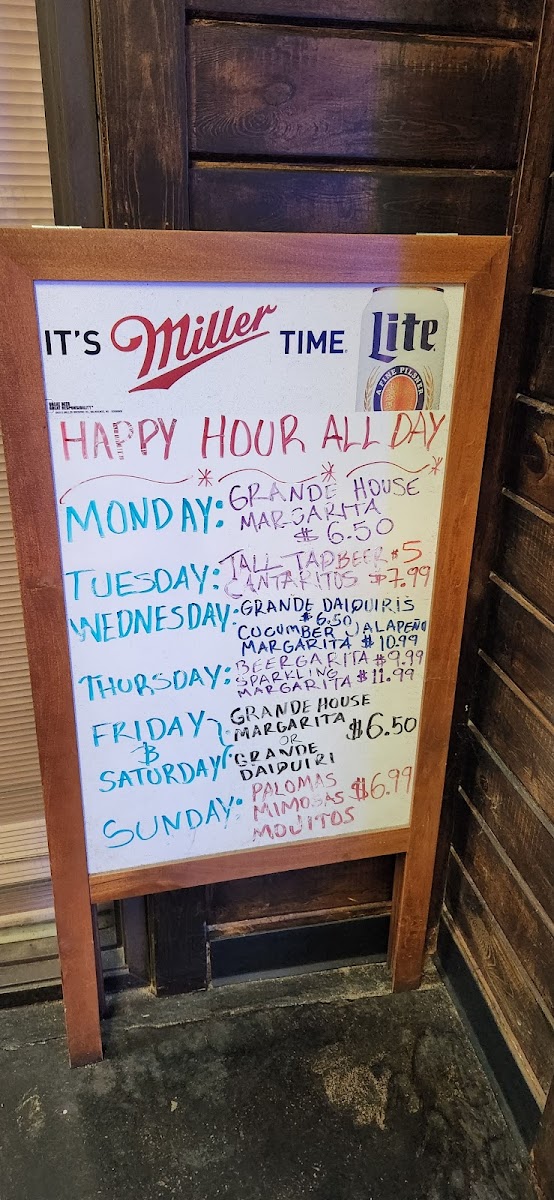 IT'S Miller TIME. Lite
A FINE PILSNER
HAPPY HOUR ALL DAY
MONDAY: GRANDE HOUSE
MARGARITA
$6.50
TUESDAY: TALL TAP BEER $5
CANTARITOS $7.99
WEDNESDAY: GRANDE DAIQUIRIS
$6.50
CUCUMBER JALAPEÑO
MARGARITA $10.99
THURSDAY: BEERGARITA $9.99
SPARKLING
MARGARITA $11.99
FRIDAY & SATURDAY: GRANDE HOUSE
MARGARITA $6.50
OR
GRANDE
DAIQUIRI
SUNDAY: PALOMAS
MIMOSAS $6.99
MOJITOS